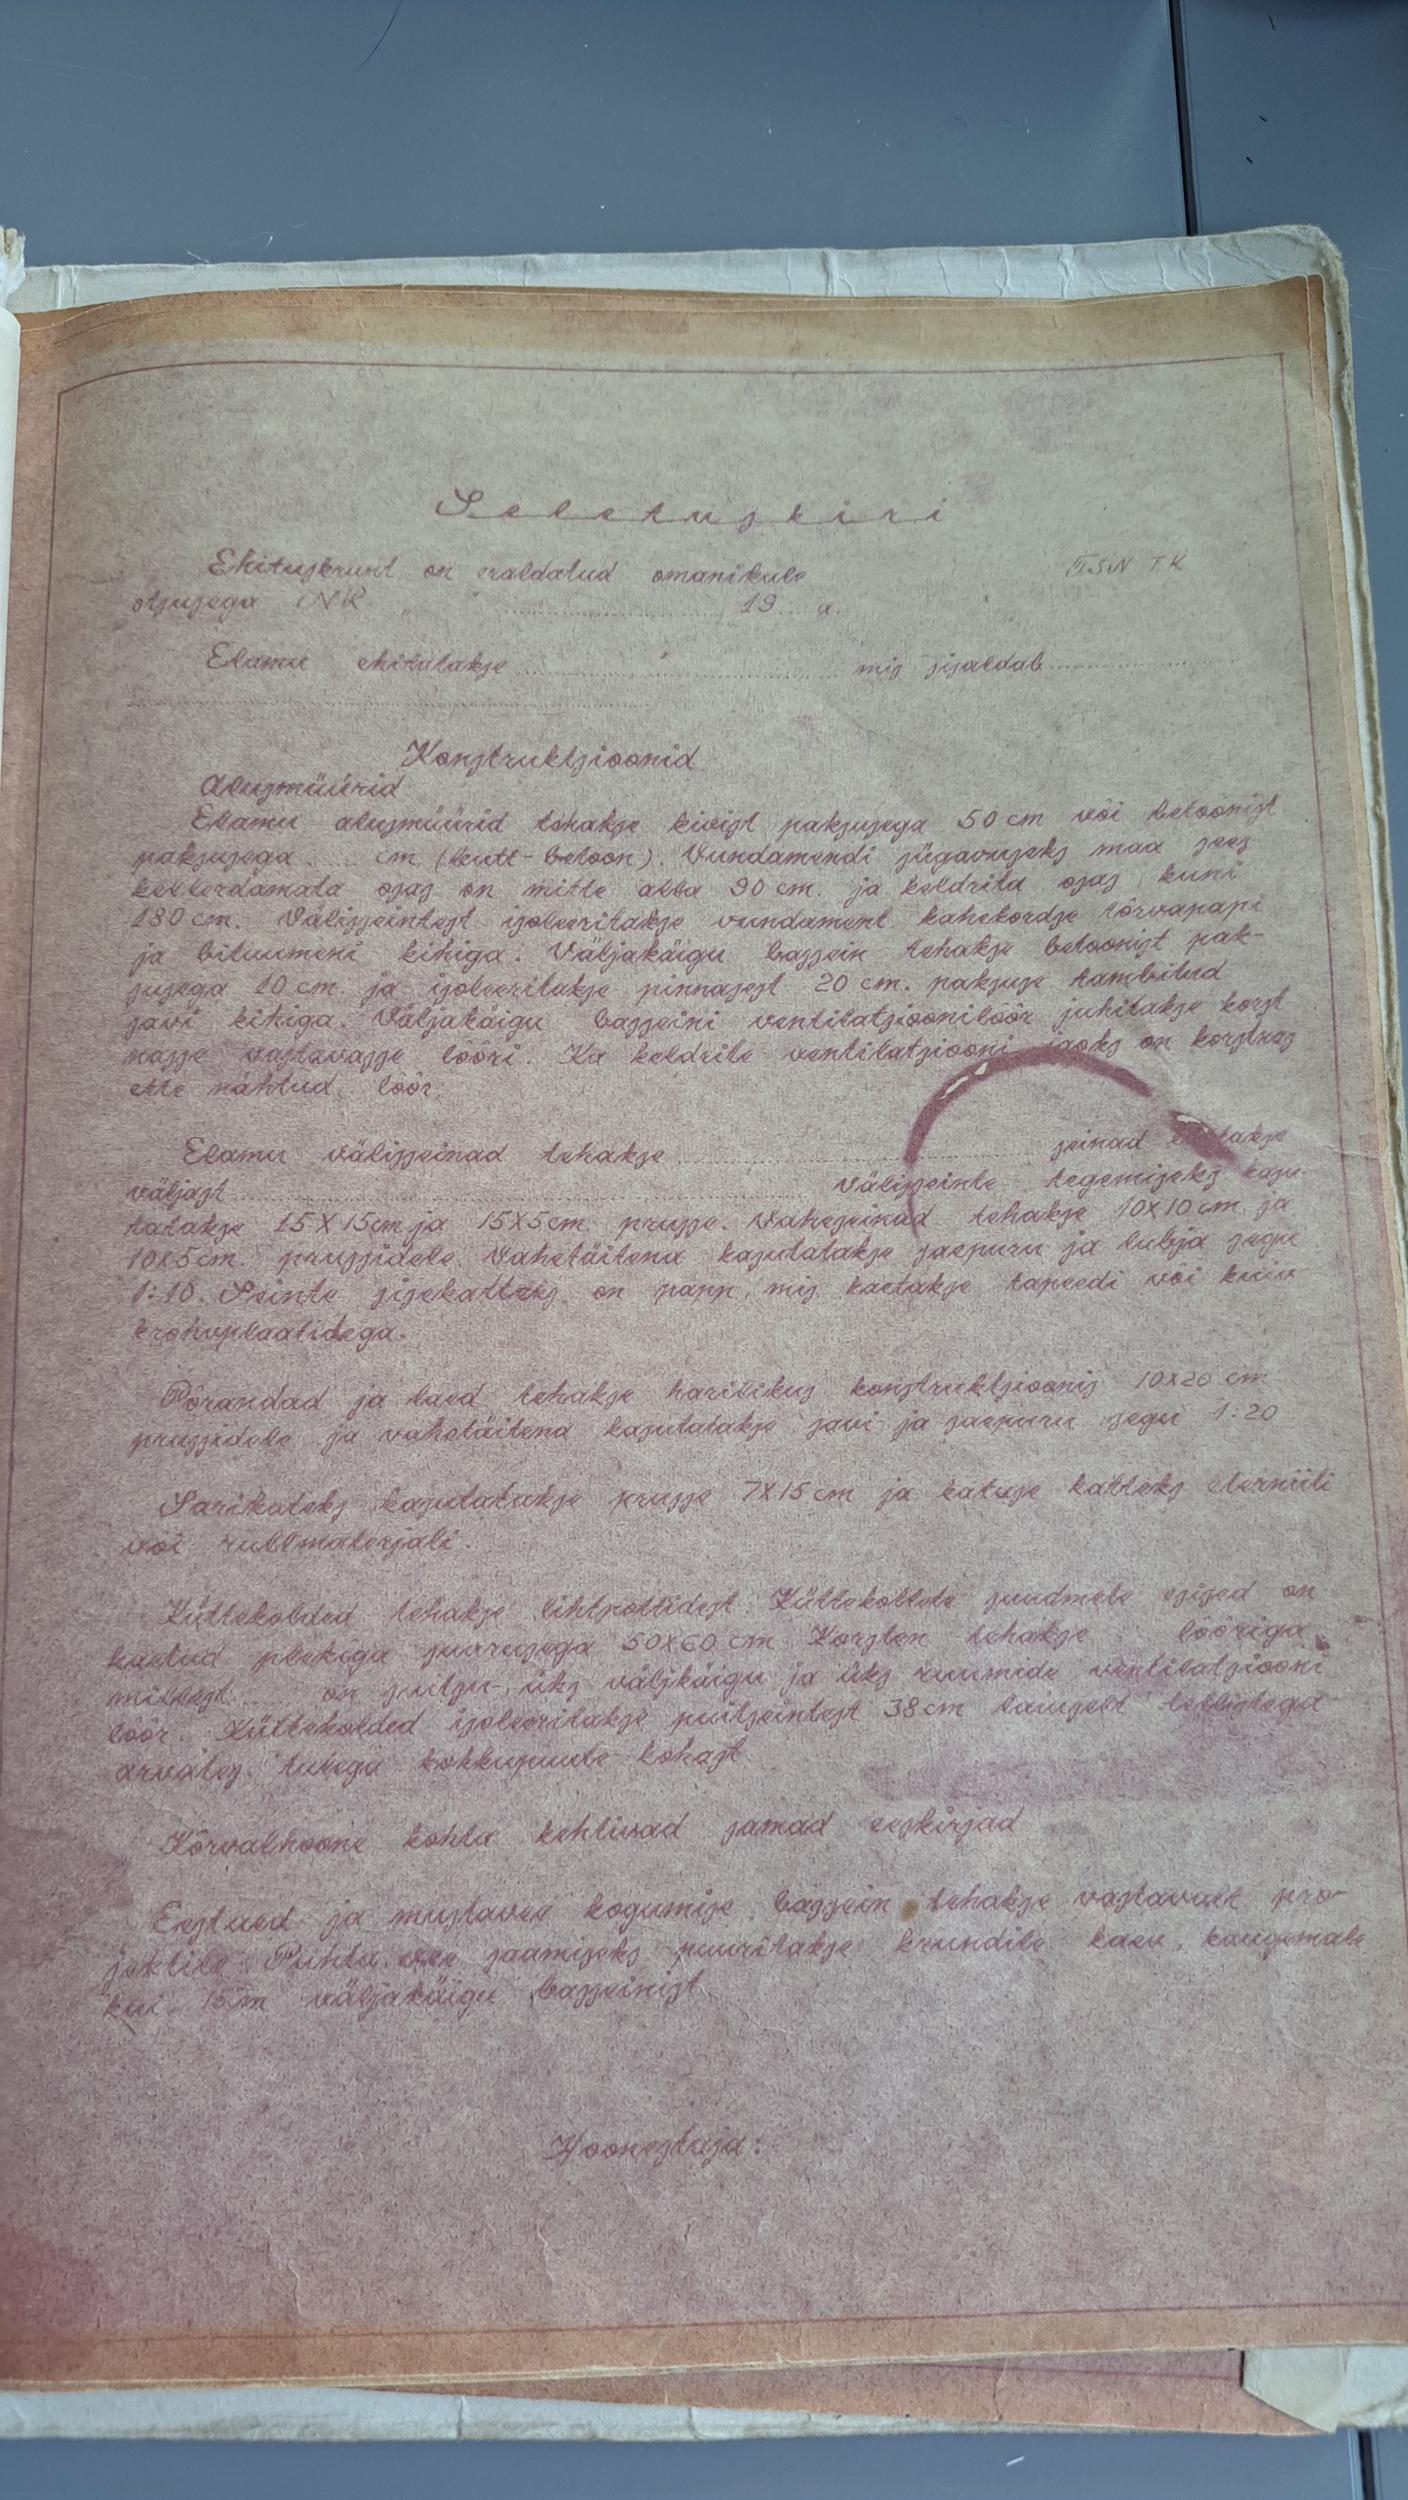 Seletuskiri
Ehituskrunt on eraldatud omanikule TSN TK
otsusega NR 19 a.
Elamu ehitatakse mis sisaldab
Konstruktsioonid
Alusmüürid
Elamu alusmüürid tehakse kivist paksusega 50 cm või betoonist
paksusega cm (butt-betoon). Vundamendi sügavuseks maa sees
kellerdamata osas on mitte alla 90 cm. ja keldrita osas kuni
180 cm. Välisseintest isoleeritakse vundament kahekordse tõrvapapi
ja bituumeni kihiga. Väljakäigu bassein tehakse betoonist pak-
susega 10 cm. ja isoleeritakse pinnasest 20 cm. paksuse tambitud
savi kihiga. Väljakäigu basseini ventilatsioonilõõr juhitakse korst
nasse vastavasse lõõri. Ka keldrile ventilatsiooni jaoks on korstnas
ette nähtud lõõr.
Elamu välisseinad tehakse seinad
väljast Välisseinte tegemiseks kasu-
tatakse 15X15cm ja 15X5cm. prusse. Vaheseinad tehakse 10X10 cm. ja
10X5cm. prussidele. Vahetäitena kasutatakse saepuru ja lubja segu
1:10. Seinte sisekatteks on papp, mis kaetakse tapeedi või kuiv
krohvplaatidega.
Põrandad ja laed tehakse harilikus konstruktsioonis 10X20 cm
prussidele ja vahetäitena kasutatakse savi ja saepuru segu 1:20
Sarikateks kasutatakse prusse 7X15 cm ja katuse katteks eterniiti
või rullmaterjali.
Küttekolded tehakse lihtpottidest. Küttekollete suudmete esised on
kaetud plekiga suurusega 50X60 cm. Korsten tehakse lõõriga
millest on suitsu-, üks väljkäigu ja üks ruumide ventilatsiooni
lõõr. Küttekolded isoleeritakse puitseintest 38 cm laiuselt tellistega
arvates tulega kokkupuute kohast
Kõrvalhoone kohta kehtivad samad eeskirjad
Eestued ja mustavee kogumise bassein tehakse vastavalt pro-
jektile. Puhta vee saamiseks puuritakse krundile kaev, kaugemale
kui 15 m väljakäigu basseinist
Hoonestaja: